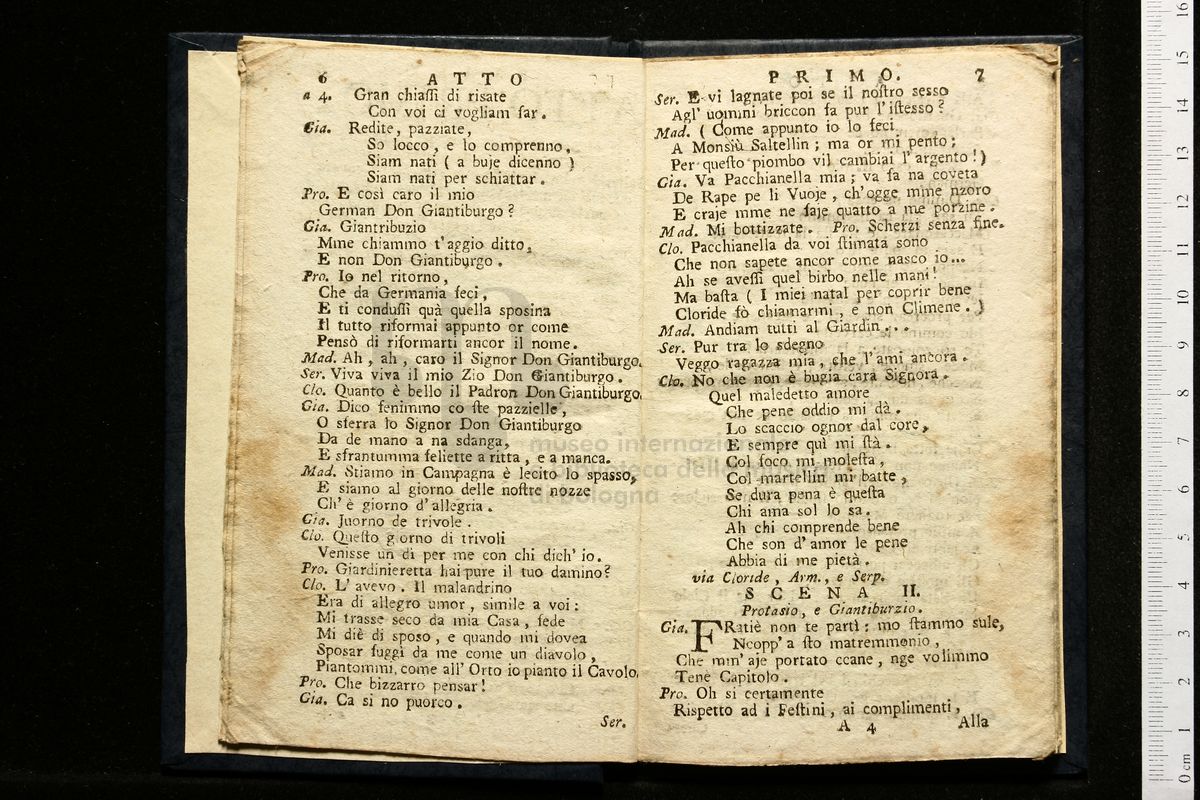 6 ATTO
a 4. Gran chiaſſi di risate
Con voi ci vogliam far.
Gia. Redite, pazziate,
So locco, e lo comprenno,
Siam nati ( a buje dicenno )
Siam nati per schiattar.
Pro. E così caro il mio
German Don Giantiburgo?
Gia. Giantribuzio
Mme chiammo t'aggio ditto,
E non Don Giantiburgo.
Pro. Io nel ritorno,
Che da Germania feci,
E ti conduſſi quà quella sposina
Il tutto riformai appunto or come
Pensò di riformarti ancor il nome.
Mad. Ah, ah, caro il Signor Don Giantiburgo.
Ser. Viva viva il mio Zio Don Giantiburgo.
Clo. Quanto è bello il Padron Don Giantiburgo.
Gia. Dico fenimmo co ſte pazzielle,
O sferra lo Signor Don Giantiburgo
Da de mano a na sdanga,
E sfrantumma feliette a ritta, e a manca.
Mad. Stiamo in Campagna è lecito lo spasso,
E siamo al giorno delle noſtre nozze
Ch' è giorno d'allegria.
Gia. Juorno de trivole.
Clo. Queſto g orno di trivoli
Venisse un dì per me con chi dich' io.
Pro. Giardinieretta hai pure il tuo damino?
Clo. L' avevo. Il malandrino
Era di allegro umor, simile a voi:
Mi trasse seco da mia Casa, fede
Mi diè di sposo, e quando mi dovea
Sposar fuggì da me come un diavolo,
Piantommi, come all' Orto io pianto il Cavolo.
Pro. Che bizzarro pensar!
Gia. Ca si no puorco.
Ser.
PRIMO. 7
Ser. E vi lagnate poi se il noſtro sesso
Agl' uomini briccon fa pur l'iſtesso?
Mad. ( Come appunto io lo feci
A Monsiù Saltellin; ma or mi pento;
Per queſto piombo vil cambiai l'argento!)
Gia. Va Pacchianella mia; va fa na coveta
De Rape pe li Vuoje, ch'ogge mme nzoro
E craje mme ne faje quatto a me porzine.
Mad. Mi bottizzate. Pro. Scherzi senza fine.
Clo. Pacchianella da voi ſtimata sono
Che non sapete ancor come nasco io...
Ah se aveſſi quel birbo nelle mani!
Ma baſta ( I miei natal per coprir bene
Cloride fò chiamarmi, e non Climene. )
Mad. Andiam tutti al Giardin...
Ser. Pur tra lo sdegno
Veggo ragazza mia, che l'ami ancora.
Clo. No che non è bugia cara Signora.
Quel maledetto amore
Che pene oddio mi dà.
Lo scaccio ognor dal core,
E sempre quì mi ſtà.
Col foco mi moleſta,
Col martellin mi batte,
Se dura pena è queſta
Chi ama sol lo sa.
Ah chi comprende bene
Che son d'amor le pene
Abbia di me pietà.
via Cloride, Arm., e Serp.
SCENA II.
Protasio, e Giantiburzio.
Gia. FRatiè non te partì: mo ſtammo sule,
Ncopp' a ſto matremmonio,
Che mm' aje portato ccane, nge volimmo
Tenè Capitolo.
Pro. Oh si certamente
Rispetto ad i Feſtini, ai complimenti,
A 4 Alla
museo internazionale
biblioteca della musica
di bologna
0 cm 1 2 3 4 5 6 7 8 9 10 11 12 13 14 15 16